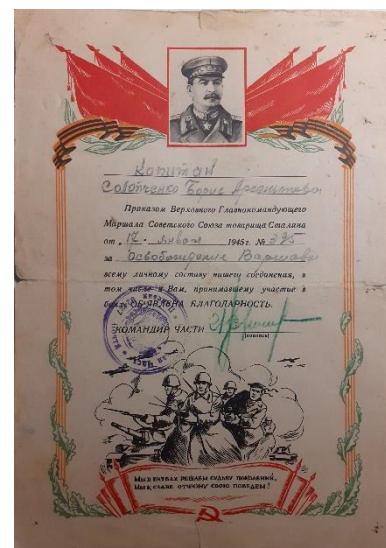 Капитан
Борис
Приказом Верховного Главнокомандующего
Маршала Советского Союза товарища Сталина
от „17" января 1945 г. №
за Освобождение Варшавы
всему личному составу нашего соединения, в
том числе и Вам, принимавшему участие в
боях, ОБ'ЯВЛЕНА БЛАГОДАРНОСТЬ.
КОМАНДИР ЧАСТИ
(подпись)
МЫ В БИТВАХ РЕШАЕМ СУДЬБУ ПОКОЛЕНИЙ,
МЫ К СЛАВЕ ОТЧИЗНУ СВОЮ ПОВЕДЕМ!